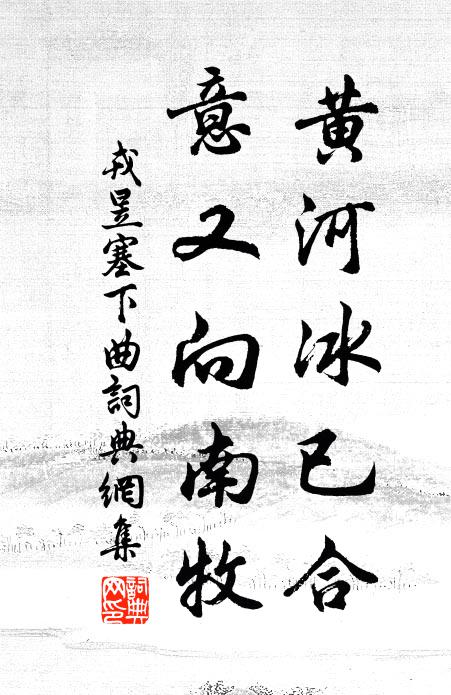 黄河冰已合
意又向南牧
戎昱塞下曲詞典網集
詞典
网印